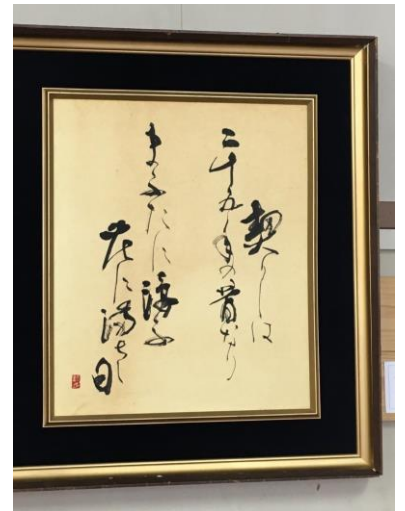 契りしは
二十五年の昔なり
まふたに浮ふ
花に満ちし日